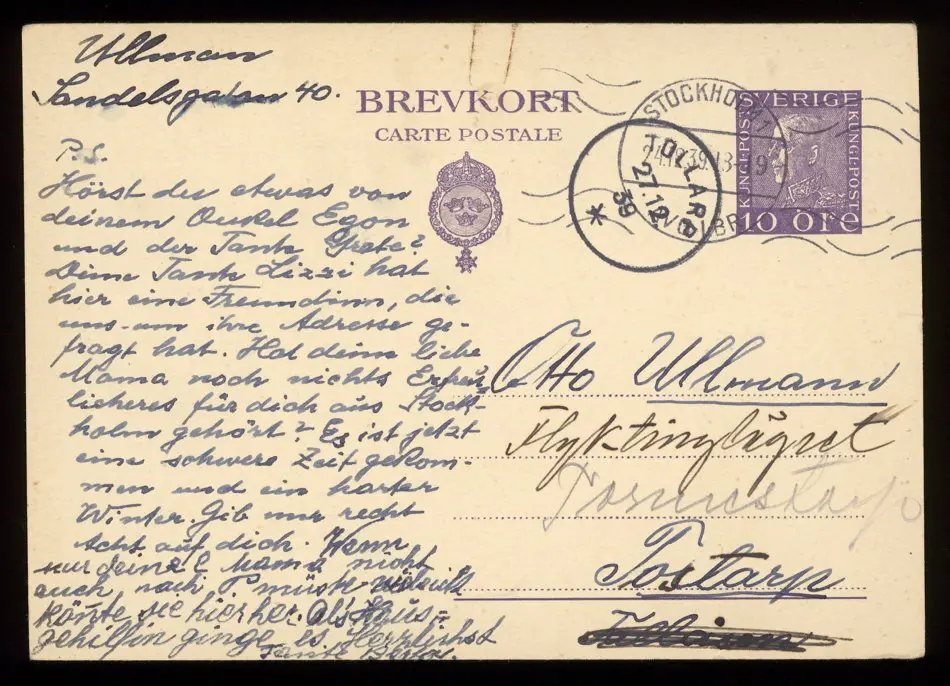 Ullman
Sandelsgatan 40.
BREVKORT
CARTE POSTALE
STOCKHOLM
SVERIGE
KUNGL·POST
KUNGL·POST
10 ÖRE
TOLLARP
27.12
39
P.S.
Hörst du etwas von
deinem Onkel Egon
und der Tante Grete?
Deine Tante Lizzi hat
hier eine Freundinn, die
uns um ihre Adresse ge-
fragt hat. Hat deine liebe
Mama noch nichts Erfreu-
licheres für dich aus Stock-
holm gehört? Es ist jetzt
eine schwere Zeit gekom-
men und ein harter
Winter. Gib nur recht
Acht auf dich. Wenn
nur deine l. Mama nicht
auch nach P müste vieleicht
könte sie hierher als Haus-
gehilfin ginge es. Herzlichst
Tante
Otto Ullmann
Flyktinglägret
Tostarp